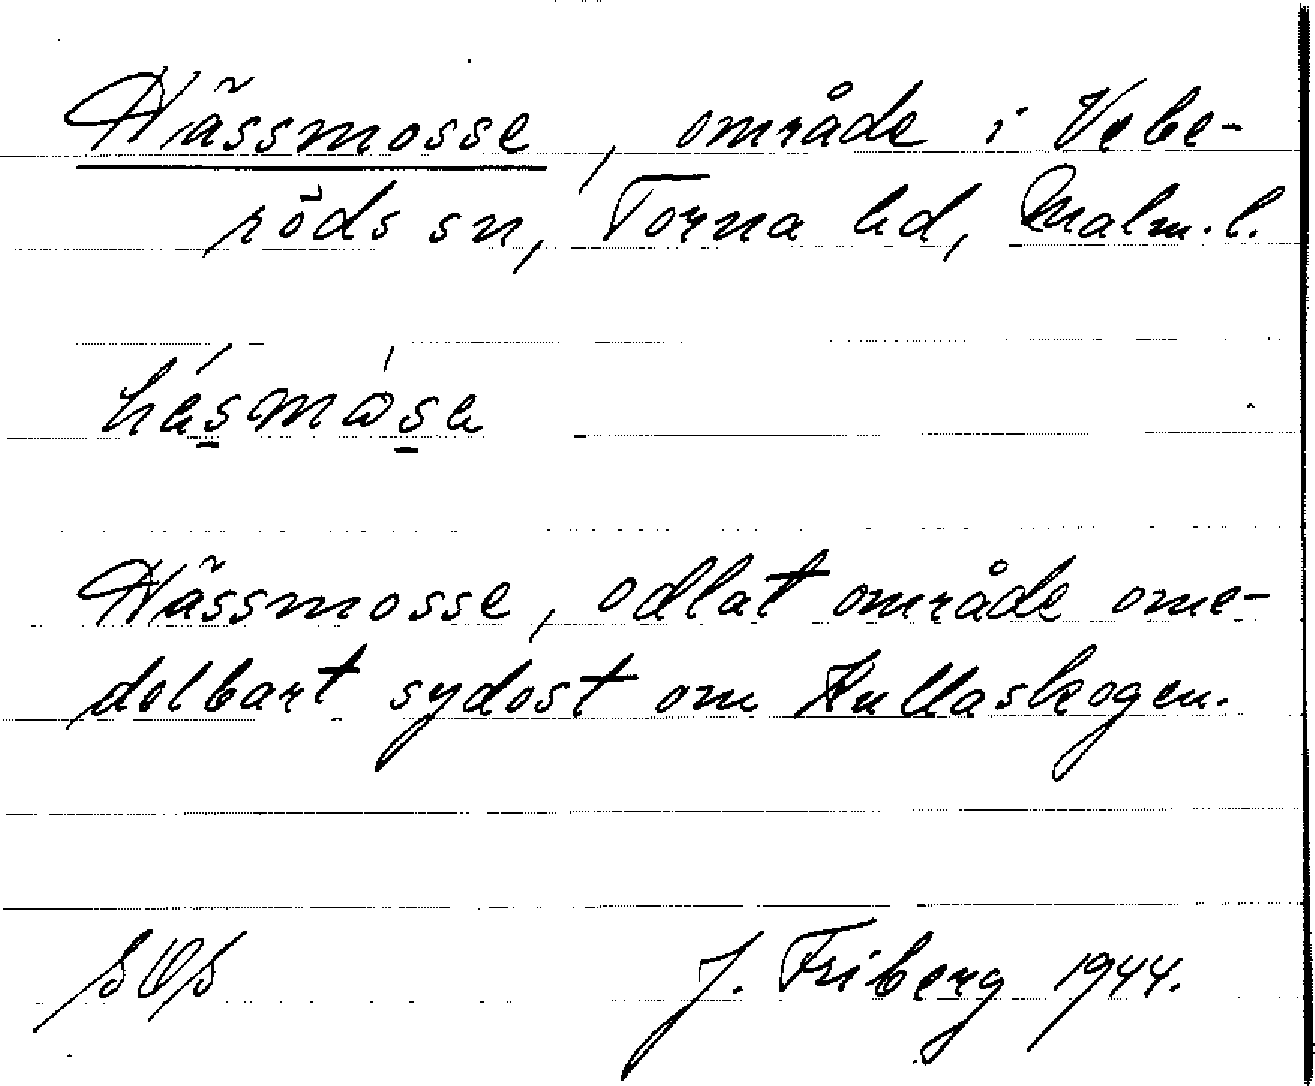 Hässmosse, område i Vebe-
röds sn, Torna hd, Malm.l.
Hässmosse, odlat område ome-
delbart sydost om Kullaskogen.
J. Friberg 1944.